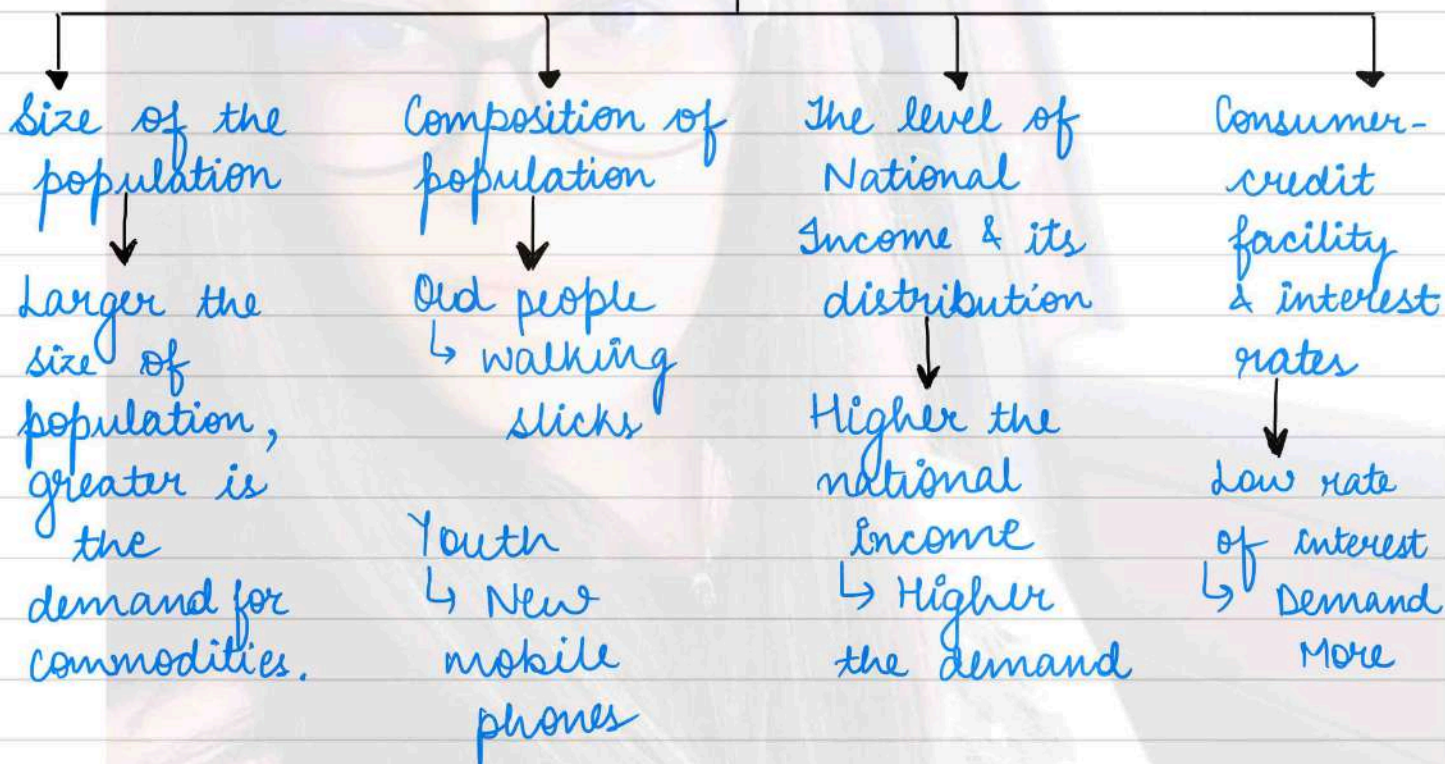 Size of the
population
Larger the
size of
population,
greater is
the
demand for
commodities.
Composition of
population
Old people
↳ walking
sticks
Youth
↳ New
mobile
phones
The level of
National
Income & its
distribution
Higher the
national
income
↳ Higher
the demand
Consumer-
credit
facility
& interest
rates
Low rate
of interest
↳ Demand
More